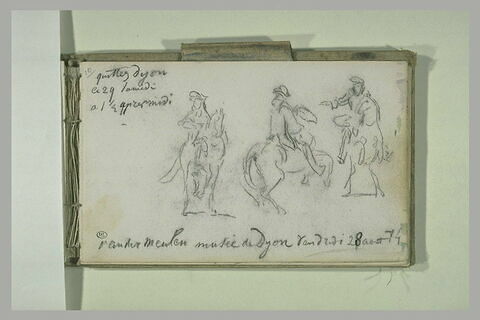 quittez dyon
ce 29 samedi
a 1 h apres midi
vander meulen musée de Dyon vendredi 28 aout 74